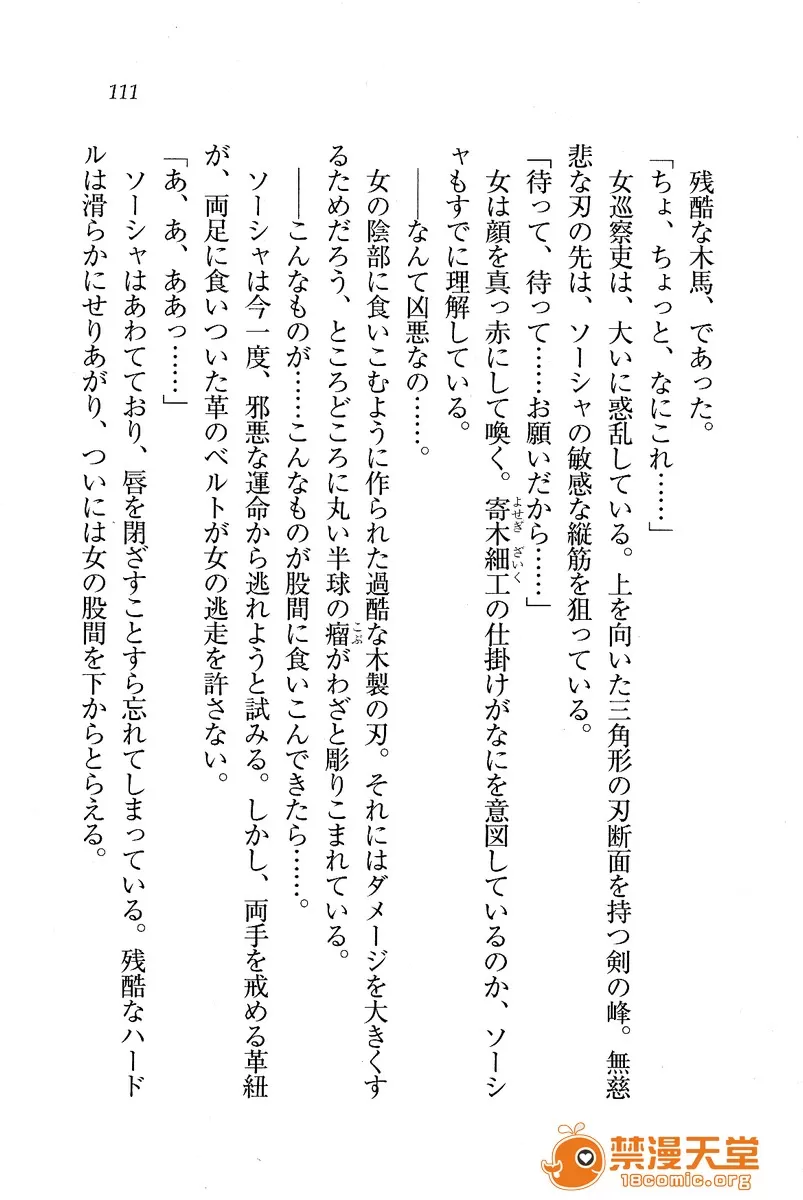 111
残酷な木馬、であった。
「ちょ、ちょっと、なにこれ……」
女巡察吏は、大いに惑乱している。上を向いた三角形の刃断面を持つ剣の峰。無慈
悲な刃の先は、ソーシャの敏感な縦筋を狙っている。
「待って、待って……お願いだから……」
女は顔を真っ赤にして喚く。寄木細工の仕掛けがなにを意図しているのか、ソーシ
ャもすでに理解している。
――なんて凶悪なの……。
女の陰部に食いこむように作られた過酷な木製の刃。それにはダメージを大きくす
るためだろう、ところどころに丸い半球の瘤がわざと彫りこまれている。
――こんなものが……こんなものが股間に食いこんできたら……。
ソーシャは今一度、邪悪な運命から逃れようと試みる。しかし、両手を戒める革紐
が、両足に食いついた革のベルトが女の逃走を許さない。
「あ、あ、ああっ……」
ソーシャはあわてており、唇を閉ざすことすら忘れてしまっている。残酷なハード
ルは滑らかにせりあがり、ついには女の股間を下からとらえる。
禁漫天堂
18comic.org